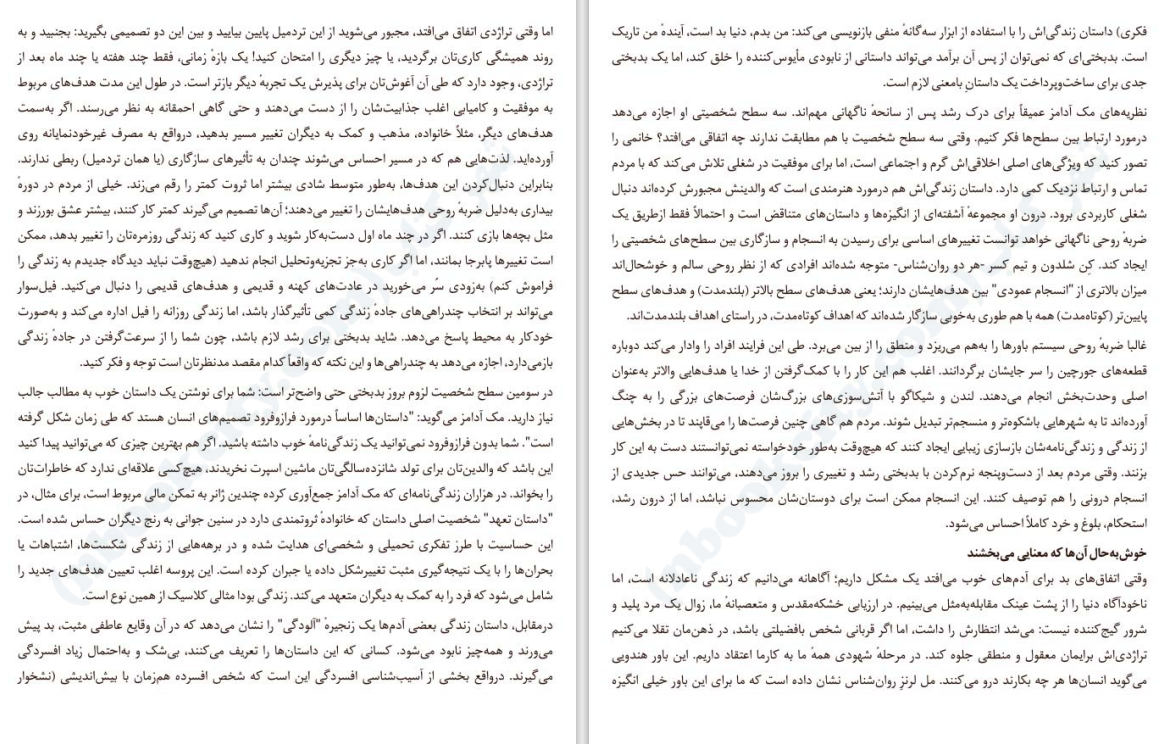 اما وقتی تراژدی اتفاق می‌افتد، مجبور می‌شوید از این تردمیل پایین بیایید و بین این دو تصمیمی بگیرید: بجنبید و به
روند همیشگی کاری‌تان برگردید، یا چیز دیگری را امتحان کنید! یک بازهٔ زمانی، فقط چند هفته یا چند ماه بعد از
تراژدی، وجود دارد که طی آن آغوش‌تان برای پذیرش یک تجربهٔ دیگر بازتر است. در طول این مدت هدف‌های مربوط
به موفقیت و کامیابی اغلب جذابیت‌شان را از دست می‌دهند و حتی گاهی احمقانه به نظر می‌رسند. اگر به‌سمت
هدف‌های دیگر، مثلاً خانواده، مذهب و کمک به دیگران تغییر مسیر بدهید، درواقع به مصرف غیرخودنمایانه روی
آورده‌اید. لذت‌هایی هم که در مسیر احساس می‌شوند چندان به تأثیرهای سازگاری (یا همان تردمیل) ربطی ندارند.
بنابراین دنبال‌کردن این هدف‌ها، به‌طور متوسط شادی بیشتر اما ثروت کمتر را رقم می‌زند. خیلی از مردم در دورهٔ
بیداری به‌دلیل ضربهٔ روحی هدف‌هایشان را تغییر می‌دهند؛ آن‌ها تصمیم می‌گیرند کمتر کار کنند، بیشتر عشق بورزند و
مثل بچه‌ها بازی کنند. اگر در چند ماه اول دست‌به‌کار شوید و کاری کنید که زندگی روزمره‌تان را تغییر بدهد، ممکن
است تغییرها پابرجا بمانند، اما اگر کاری به‌جز تجزیه‌وتحلیل انجام ندهید (هیچ‌وقت نباید دیدگاه جدیدم به زندگی را
فراموش کنم) به‌زودی سُر می‌خورید در عادت‌های کهنه و قدیمی و هدف‌های قدیمی را دنبال می‌کنید. فیل‌سوار
می‌تواند بر انتخاب چندراهی‌های جادهٔ زندگی کمی تأثیرگذار باشد، اما زندگی روزانه را فیل اداره می‌کند و به‌صورت
خودکار به محیط پاسخ می‌دهد. شاید بدبختی برای رشد لازم باشد، چون شما را از سرعت‌گرفتن در جادهٔ زندگی
بازمی‌دارد، اجازه می‌دهد به چندراهی‌ها و این نکته که واقعاً کدام مقصد مدنظرتان است توجه و فکر کنید.
در سومین سطح شخصیت لزوم بروز بدبختی حتی واضح‌تر است: شما برای نوشتن یک داستان خوب به مطالب جالب
نیاز دارید. مک آدامز می‌گوید: "داستان‌ها اساساً درمورد فرازوفرود تصمیم‌های انسان هستند که طی زمان شکل گرفته
است". شما بدون فرازوفرود نمی‌توانید یک زندگی‌نامهٔ خوب داشته باشید. اگر هم بهترین چیزی که می‌توانید پیدا کنید
این باشد که والدین‌تان برای تولد شانزده‌سالگی‌تان ماشین اسپرت نخریدند، هیچ‌کسی علاقه‌ای ندارد که خاطرات‌تان
را بخواند. در هزاران زندگی‌نامه‌ای که مک آدامز جمع‌آوری کرده چندین ژانر به تمکن مالی مربوط است، برای مثال، در
"داستان تعهد" شخصیت اصلی داستان که خانوادهٔ ثروتمندی دارد در سنین جوانی به رنج دیگران حساس شده است.
این حساسیت با طرز تفکری تحمیلی و شخصی‌ای هدایت شده و در برهه‌هایی از زندگی شکست‌ها، اشتباهات یا
بحران‌ها را با یک نتیجه‌گیری مثبت تغییرشکل داده یا جبران کرده است. این پروسه اغلب تعیین هدف‌های جدید را
شامل می‌شود که فرد را به کمک به دیگران متعهد می‌کند. زندگی بودا مثالی کلاسیک از همین نوع است.
درمقابل، داستان زندگی بعضی آدم‌ها یک زنجیرهٔ "آلودگی" را نشان می‌دهد که در آن وقایع عاطفی مثبت، بد پیش
می‌ورند و همه‌چیز نابود می‌شود. کسانی که این داستان‌ها را تعریف می‌کنند، بی‌شک و به‌احتمال زیاد افسردگی
می‌گیرند. درواقع بخشی از آسیب‌شناسی افسردگی این است که شخص افسرده هم‌زمان با بیش‌اندیشی (نشخوار
فکری) داستان زندگی‌اش را با استفاده از ابزار سه‌گانهٔ منفی بازنویسی می‌کند: من بدم، دنیا بد است، آیندهٔ من تاریک
است. بدبختی‌ای که نمی‌توان از پس آن برآمد می‌تواند داستانی از نابودی مأیوس‌کننده را خلق کند، اما یک بدبختی
جدی برای ساخت‌وپرداخت یک داستان بامعنی لازم است.
نظریه‌های مک آدامز عمیقاً برای درک رشد پس از سانحهٔ ناگهانی مهم‌اند. سه سطح شخصیتی او اجازه می‌دهد
درمورد ارتباط بین سطح‌ها فکر کنیم. وقتی سه سطح شخصیت با هم مطابقت ندارند چه اتفاقی می‌افتد؟ خانمی را
تصور کنید که ویژگی‌های اصلی اخلاقی‌اش گرم و اجتماعی است، اما برای موفقیت در شغلی تلاش می‌کند که با مردم
تماس و ارتباط نزدیک کمی دارد. داستان زندگی‌اش هم درمورد هنرمندی است که والدینش مجبورش کرده‌اند دنبال
شغلی کاربردی برود. درون او مجموعهٔ آشفته‌ای از انگیزه‌ها و داستان‌های متناقض است و احتمالاً فقط ازطریق یک
ضربهٔ روحی ناگهانی خواهد توانست تغییرهای اساسی برای رسیدن به انسجام و سازگاری بین سطح‌های شخصیتی را
ایجاد کند. کِن شلدون و تیم کسر -هر دو روان‌شناس- متوجه شده‌اند افرادی که از نظر روحی سالم و خوشحال‌اند
میزان بالاتری از "انسجام عمودی" بین هدف‌هایشان دارند؛ یعنی هدف‌های سطح بالاتر (بلندمدت) و هدف‌های سطح
پایین‌تر (کوتاه‌مدت) همه با هم طوری به‌خوبی سازگار شده‌اند که اهداف کوتاه‌مدت، در راستای اهداف بلندمدت‌اند.
غالبا ضربهٔ روحی سیستم باورها را به‌هم می‌ریزد و منطق را از بین می‌برد. طی این فرایند افراد را وادار می‌کند دوباره
قطعه‌های جورچین را سر جایشان برگردانند. اغلب هم این کار را با کمک‌گرفتن از خدا یا هدف‌هایی والاتر به‌عنوان
اصلی وحدت‌بخش انجام می‌دهند. لندن و شیکاگو با آتش‌سوزی‌های بزرگ‌شان فرصت‌های بزرگی را به چنگ
آورده‌اند تا به شهرهایی باشکوه‌تر و منسجم‌تر تبدیل شوند. مردم هم گاهی چنین فرصت‌ها را می‌قاپند تا در بخش‌هایی
از زندگی و زندگی‌نامه‌شان بازسازی زیبایی ایجاد کنند که هیچ‌وقت به‌طور خودخواسته نمی‌توانستند دست به این کار
بزنند. وقتی مردم بعد از دست‌وپنجه نرم‌کردن با بدبختی رشد و تغییری را بروز می‌دهند، می‌توانند حس جدیدی از
انسجام درونی را هم توصیف کنند. این انسجام ممکن است برای دوستان‌شان محسوس نباشد، اما از درون رشد،
استحکام، بلوغ و خرد کاملاً احساس می‌شود.
خوش‌به‌حال آن‌ها که معنایی می‌بخشند
وقتی اتفاق‌های بد برای آدم‌های خوب می‌افتد یک مشکل داریم؛ آگاهانه می‌دانیم که زندگی ناعادلانه است، اما
ناخودآگاه دنیا را از پشت عینک مقابله‌به‌مثل می‌بینیم. در ارزیابی خشکه‌مقدس و متعصبانهٔ ما، زوال یک مرد پلید و
شرور گیج‌کننده نیست: می‌شد انتظارش را داشت، اما اگر قربانی شخص بافضیلتی باشد، در ذهن‌مان تقلا می‌کنیم
تراژدی‌اش برایمان معقول و منطقی جلوه کند. در مرحلهٔ شهودی همهٔ ما به کارما اعتقاد داریم. این باور هندویی
می‌گوید انسان‌ها هر چه بکارند درو می‌کنند. مل لرنزِ روان‌شناس نشان داده است که ما برای این باور خیلی انگیزه